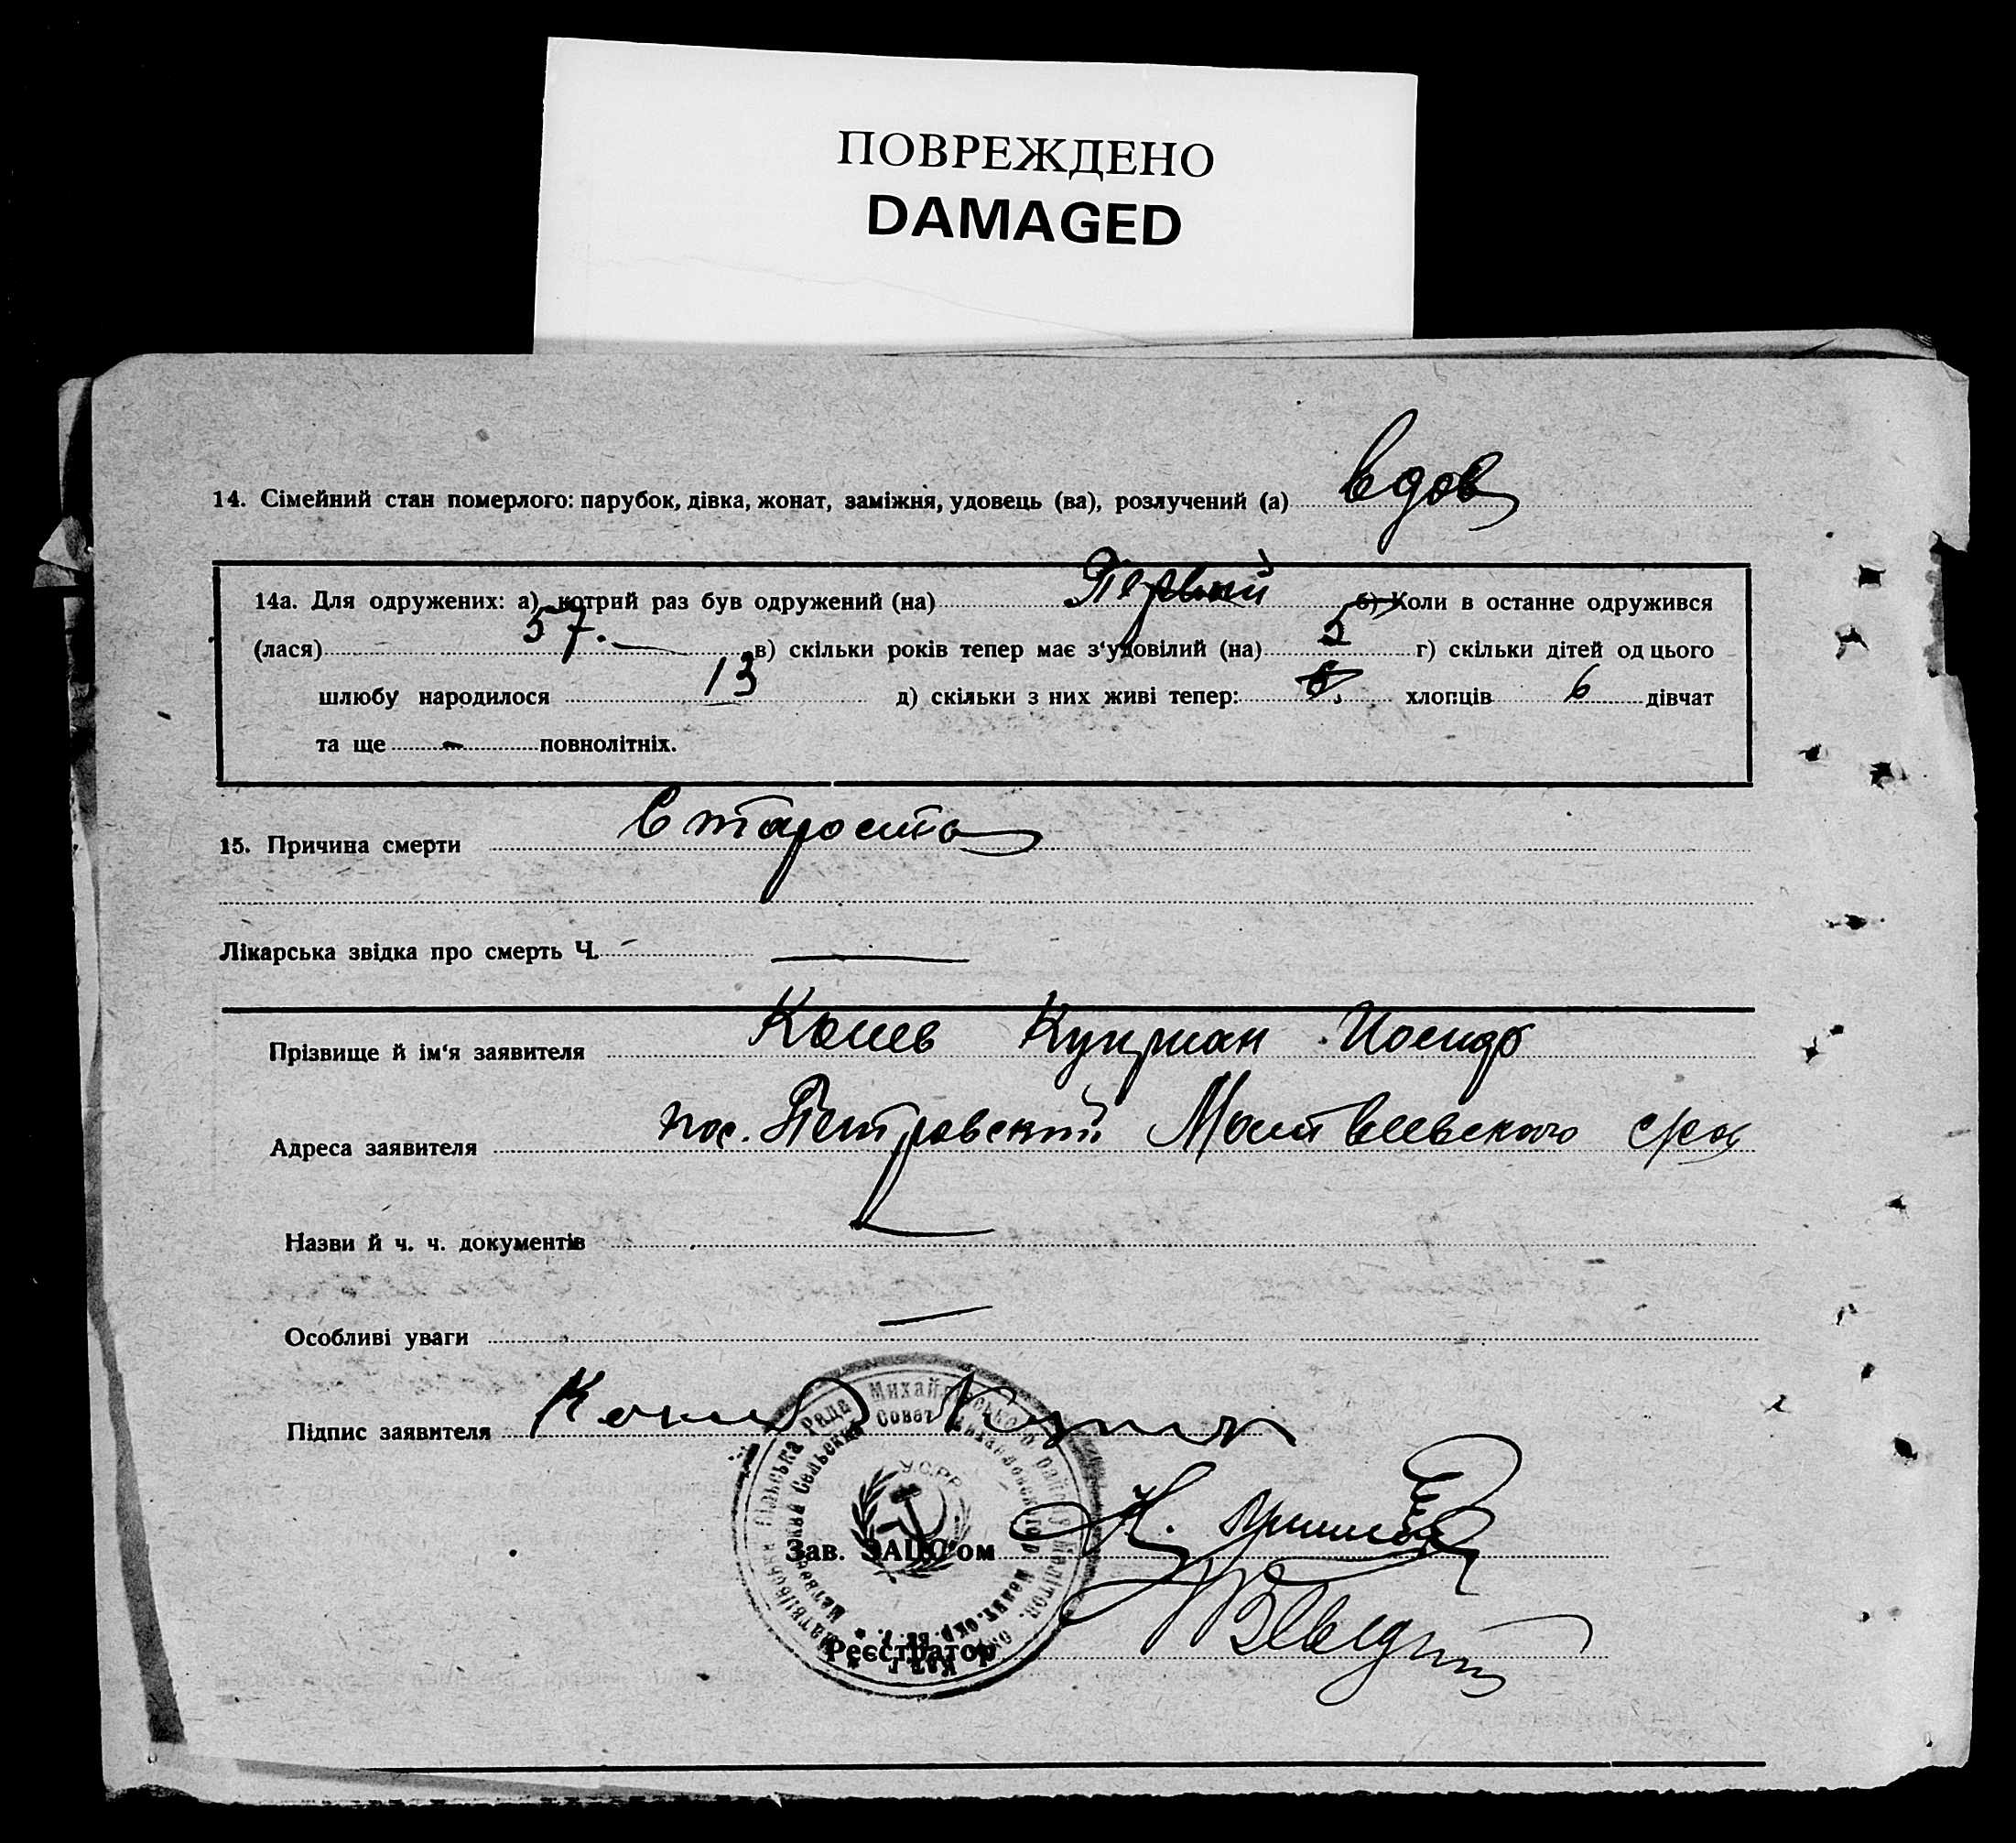 ПОВРЕЖДЕНО
DAMAGED
14. Сімейний стан померлого: парубок, дівка, жонат, заміжня, удовець (ва), розлучений (а) вдов
14а. Для одружених: а) котрий раз був одружений (на) Первый б) Коли в останнє одружився
(лася) 57. в) скільки років тепер має з'удовілий (на) 5 г) скільки дітей од цього
шлюбу народилося 13 д) скільки з них живі тепер: хлопців 6 дівчат
та ще - повнолітніх.
15. Причина смерти Старость
Лікарська звідка про смерть Ч. —
Прізвище й ім'я заявителя
Адреса заявителя пос. Петровский Матвеевского с/сов
Назви й ч. ч. документів —
Особливі уваги —
Підпис заявителя
У.С.Р.Р.
Зав. ЗАЦС'ом
Реєстратор